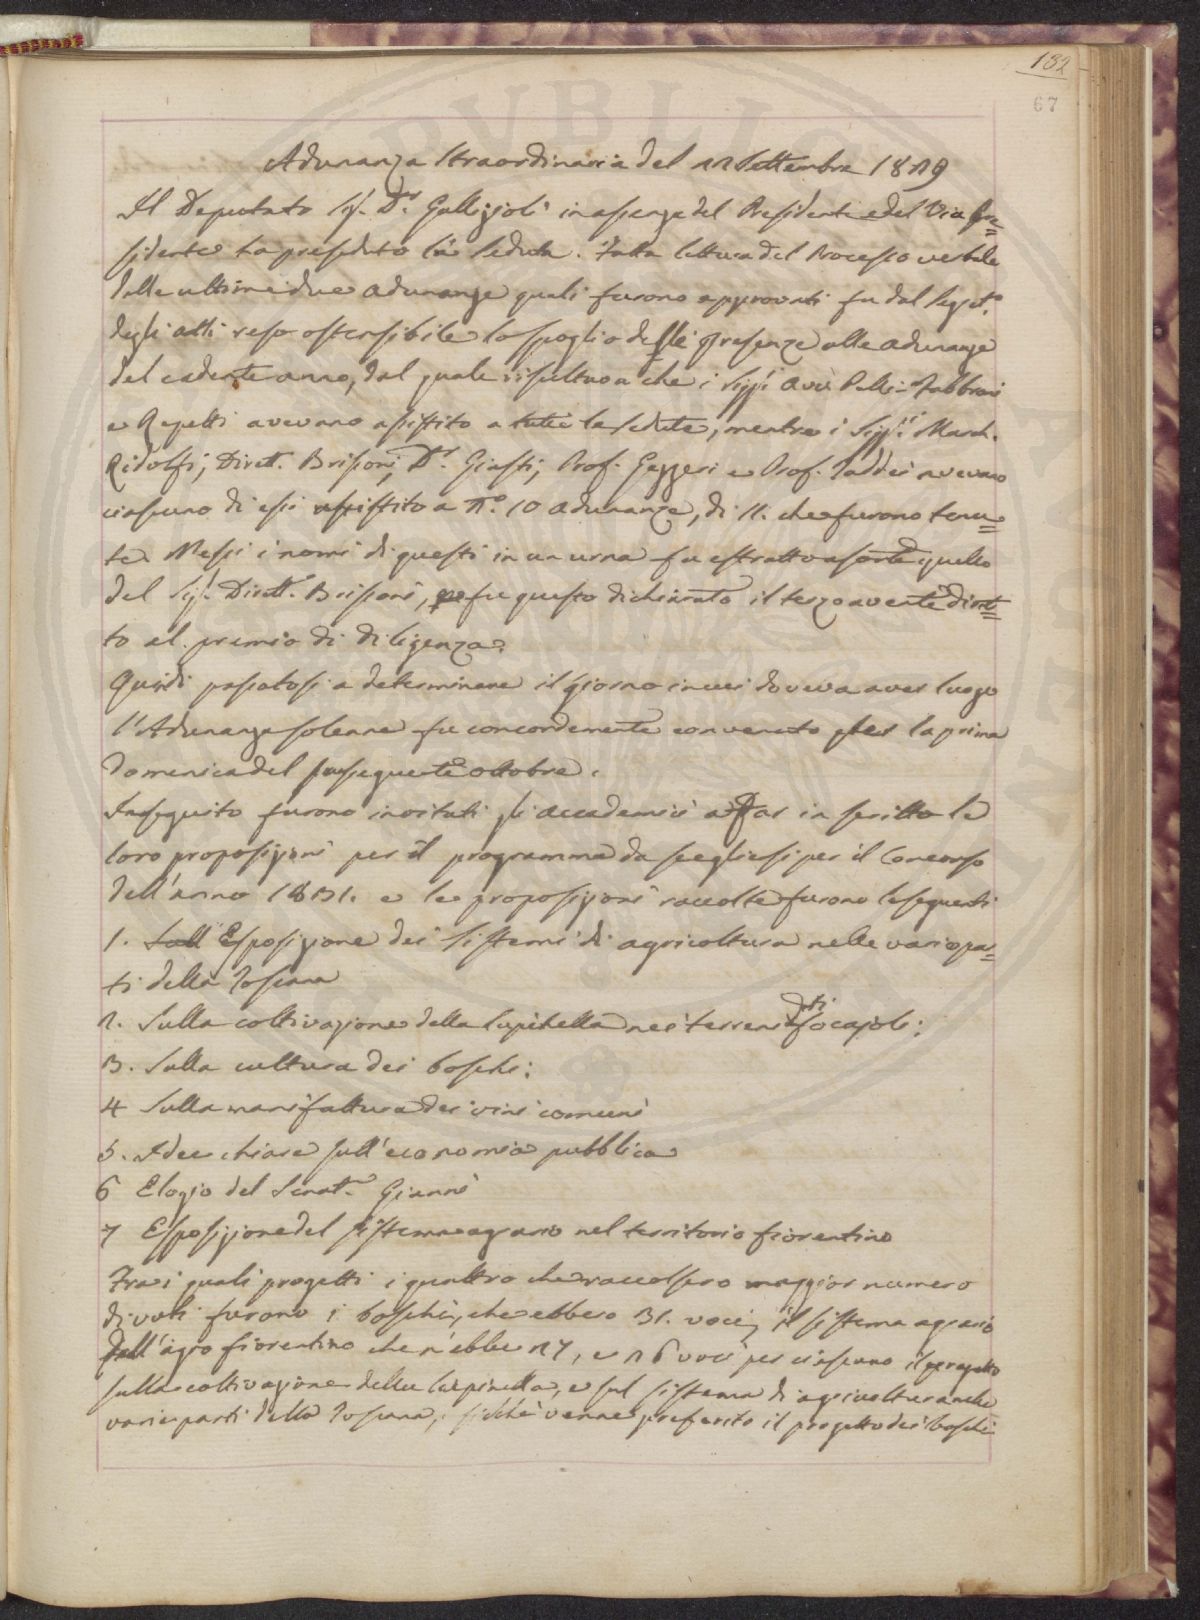 182
67
Adunanza straordinaria del 12 Settembre 1829
Il Deputato Sig.r D.r Gallizioli in assenza del Presidente e del Vice Pre=
sidente ha preseduto la seduta. Fatta lettura del Processo verbale
delle ultime due adunanze quali furono approvati fu dal Segret.o
degli atti reso ostensibile lo spoglio delle presenze alle adunanze
del cadente anno, dal quale risultava che i Sigg.i Avv. Pelli-Fabbroni
e Repetti avevano assistito a tutte le sedute, mentre i Sigg.ri March.
Ridolfi, Dirett. Brisoni, D.r Giusti, Prof. Gazzeri e Prof. Taddei avevano
ciascuno di essi assistito a N.o 10 adunanze, di 11. che furono tenu=
te. Messi i nomi di questi in un urna fu estratto a sorte quello
del Sig.r Dirett.e Brisoni, e fu questo dichiarato il terzo avente dirit=
to al premio di diligenza.
Quindi passatosi a determinare il giorno in cui doveva aver luogo
l'Adunanza solenne fu concordemente convenuto per la prima
Domenica del susseguente ottobre.
In seguito furono invitati gli accademici a dar in scritto le
loro proposizioni per il programma da scegliersi per il Concorso
dell'anno 1831. e le proposizioni raccolte furono le seguenti
1. Sull Esposizione dei sistemi di agricoltura nelle varie par=
ti della Toscana
2. Sulla coltivazione della lupinella nei terreni detti focajoli;
3. Sulla cultura dei boschi;
4 Sulla manifattura dei vini comuni
5. Idee chiare sull'economia pubblica
6 Elogio del Senat.re Gianni
7 Esposizione del sistema agrario nel territorio fiorentino
Fra i quali progetti i quattro che raccolsero maggior numero
di voti furono i boschi, che ebbero 31. voci, il sistema agrario
dell'agro fiorentino che n'ebbe 27, e 26 voci per ciascuno il progetto
sulla coltivazione della lupinella, e sul sistema di agricoltura nelle
varie parti della Toscana, sicchè venne preferito il progetto dei boschi